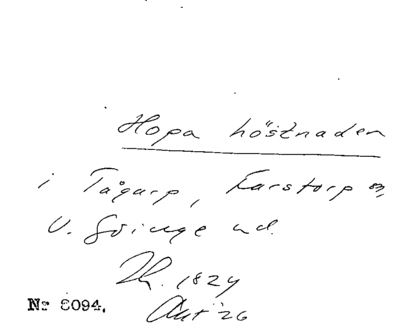 Hopa höstnaden
i Tågarp, Farstorp sn,
V. Göinge hd.
Th. 1824
Aut '26
Nr 8094.